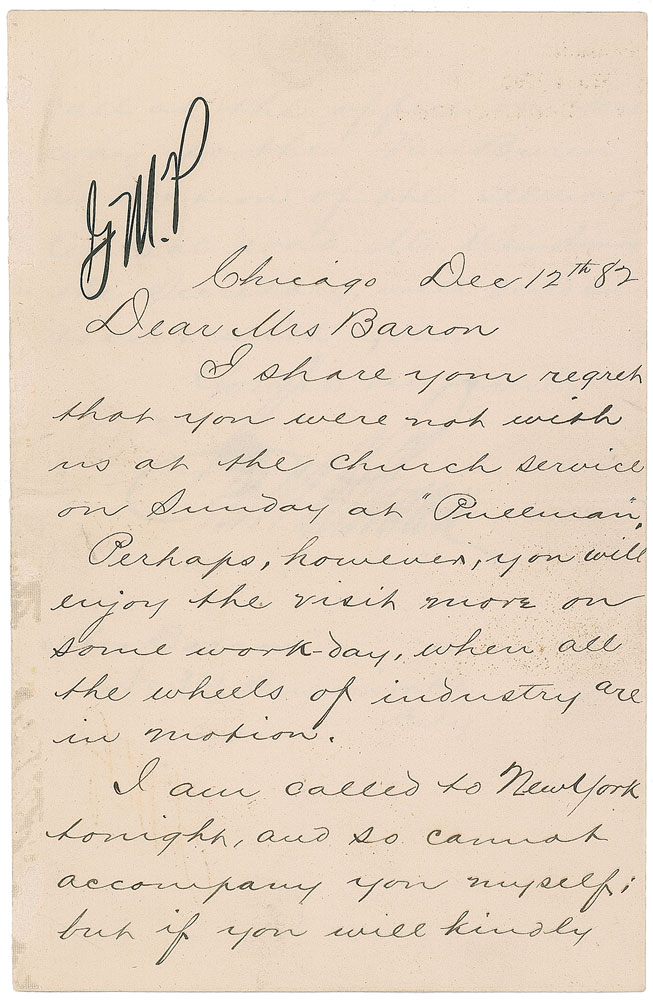 G.M.P
Chicago Dec 12th 82
Dear Mrs Barron
I share your regret
that you were not with
us at the church service
on Sunday at "Pullman".
Perhaps, however, you will
enjoy the visit more on
some work-day, when all
the wheels of industry are
in motion.
I am called to New York
tonight, and so cannot
accompany you myself;
but if you will kindly